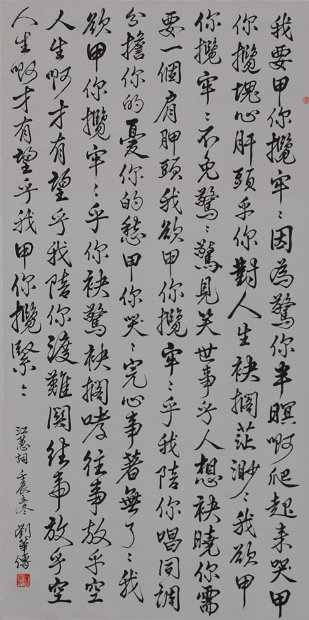 我要甲你攬牢〻因為驚你半暝啊爬起來哭甲
你攬塊心肝頭乎你對人生袂擱茫渺〻我欲甲
你攬牢〻不免驚〻驚見笑世事乎人想袂曉你需
要一個肩胛頭我欲甲你攬牢〻乎我陪你唱同調
分擔你的憂你的愁甲你哭〻完心事著無了〻我
欲甲你攬牢〻乎你袂驚袂擱哮往事放乎空
人生啊才有望乎我陪你渡難關往事放乎空
人生啊才有望乎我甲你攬緊〻
江蕙詞 壬辰冬 劉